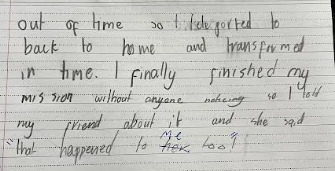 out of time so I teleported to
back to home and transformed
in time. I finally finished my
mission without anyone noticing so I told
my friend about it and she said
"that happened to me too!"